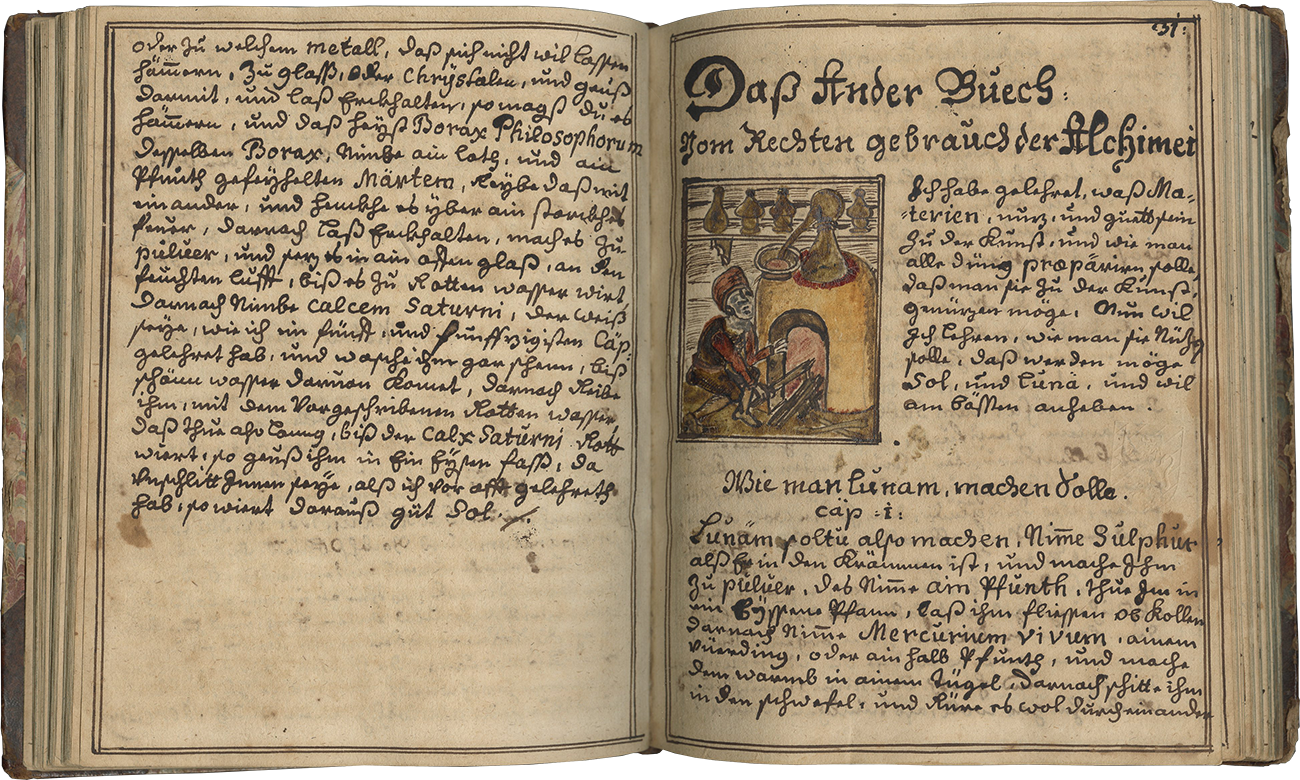 oder zu welchem metall, daß sich nicht wil lassen
hämmern, zu glaß, oder Chrÿstalen, und geuß
darmit, und laß Erckhalten, so magß du es
hämmern, und daß heÿst Borax Philosophorum
desselben Borax, Nimbe ain loth, und ain
Pfunth gefeÿhelten Martem, Reÿbe daß mit
einander, und henckhe es ÿber ain starckhes
feuer, darnach laß Erckhalten, mach es zu
puluer, und setz es in ain offen glaß, an den
feuchten lufft, biß es zu Rotten wasser wirt,
darnach Nimbe calcem Saturni, der weiß
seÿe, wie ich im fünff, und funffzigisten Cap:
gelehret hab, und wasche ihm gar schenn, biß
schänn wasser daruon Komet, darnach Reibe
ihm, mit dem Vorgeschribenen Rotten wasser
daß thue also lanng, biß der Calx Saturni Rott
wiert, so geuß ihm in Ein Eÿsen fass, da
Vnschlitt Innen seÿe, alß ich vor offt gelehreth
hab, so wiert darauß güt Sol.
31:
Daß Ander Buech:
Vom Rechten gebrauch der Alchimei
Ich habe gelehret, waß Ma-
-terien, nuz, und guett sein
zu der Kunst, und wie man
alle düng præpärirn solle,
daß man sie zu der Kunst,
genürzen möge, Nun wil
Ich Lehren, wie man sie Nüzn
solle, daß werden möge
Sol, und Luna, und wil
am bässten anheben.
Wie man Lunam, machen Solle.
cap :i:
Lunam soltu also machen, Nim̄e Sulphur
alß Er in den Krämmen ist, und mache Ihm
zu puluer, des Nim̄e ain Pfunth, thue Im in
ein Eÿssene Pfann, laß ihm fliessen ob Kollen
darnach Nim̄e Mercurium vivum, ainem
vierding, oder ain halb Pfunth, und mache
dem warmb in ainem Tügel, darnach schitte ihm
in den schwefel, und Rüre es wol durcheinander